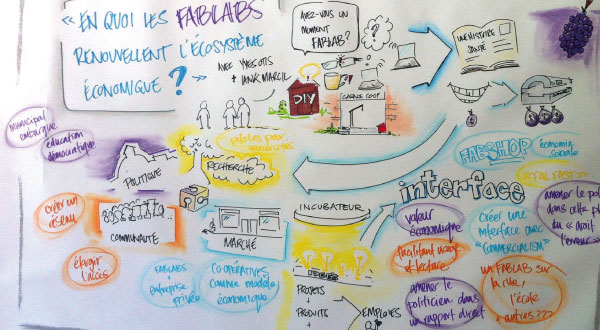 « EN QUOI LES FABLABS
RENOUVELLENT L'ÉCOSYSTÈME
ÉCONOMIQUE ? »
AVEC YVES OTIS
+ HANK MARCIL
AVEZ-VOUS UN
MOMENT
FABLAB?
?
DIY
UNE HISTOIRE
SANTÉ
municipal
éducation
démocratique
POLITIQUE
RECHERCHE
pilotes pour
FABSHOP
économie
sociale
interface
créer un
réseau
COMMUNAUTÉ
MARCHÉ
INCUBATEUR
valeur
économique
Créer une
interface avec
"COMMERCIALISM"
amener le
dans cette
du « droit
élargir
l'accès
FABLABS
entreprise
privée
COOPÉRATIVES
comme modèle
économique
facilitant usage
et lecture
PROJETS
+
PRODUITS
+
EMPLOIS
amener le
politicien dans
un rapport direct
un FABLAB sur
la rue,
l'école
+ autres ???